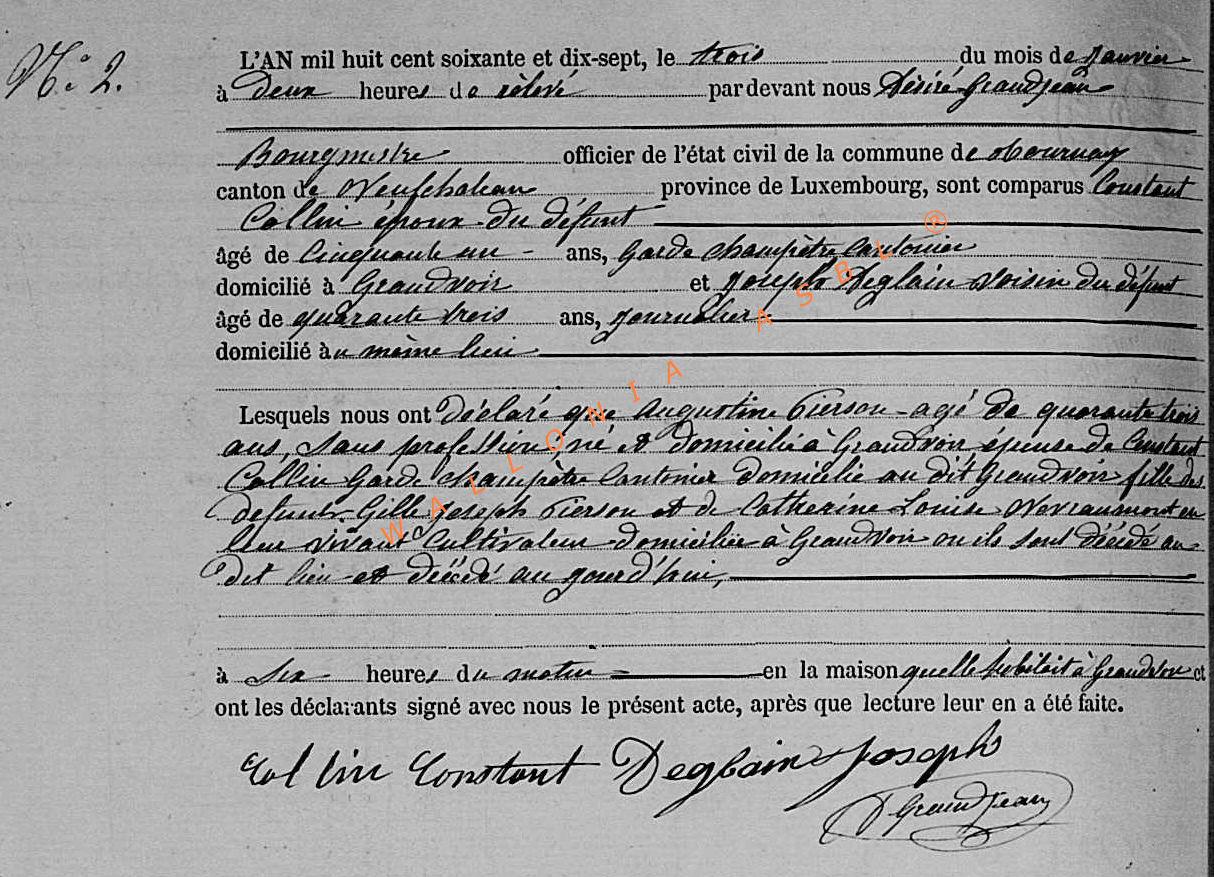 N° 2.
L'AN mil huit cent soixante et dix-sept, le trois du mois de Janvier
à Deux heures de rélevé par devant nous Désiré Grandjean
Bourgmestre officier de l'état civil de la commune de Tournay
canton de Neufchateau province de Luxembourg, sont comparus Constant
Collin époux du défunt
âgé de Cinquante un ans, Garde champètre Cantonier
domicilié à Grandvoir et Joseph Deglain Voisin du défunt
âgé de quarante trois ans, journalier
domicilié àu même lieu
Lesquels nous ont Déclaré que Augustine Pierson agé de quarante trois
ans, Sans profession, né et domicilié à Grandvoir épouse de Constant
Collin Garde champètre Cantonier domicilie au dit Grandvoir fille des
defunts Gille Joseph Pierson et de Catherine Louise en
leur vivant Cultivateur domicilié à Grandvoir ou ils sont décédé au
dit lieu et décédé au jourd'hui,
à Six heures du matin en la maison quelle habitait à Grandvoir et
ont les déclarants signé avec nous le présent acte, après que lecture leur en a été faite.
Collin Constant Deglain Joseph
D Grandjean
WALLONIA ASBL ®